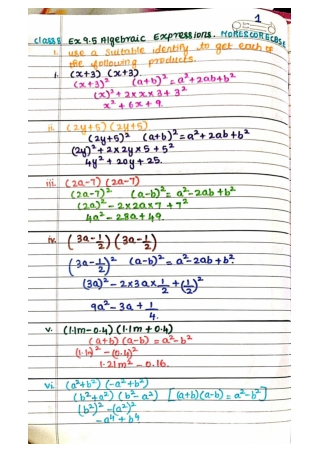 1
Class 8 Ex 9.5 Algebraic Expressions. MORESCORECBSE
1. use a suitable identity to get each of
the following products.
i. (x+3) (x+3)
(x+3)² (a+b)² = a²+2ab+b²
(x)² + 2 x x x 3 + 3²
x² + 6x + 9.
ii. (2y+5) (2y+5)
(2y+5)² (a+b)² = a²+2ab+b²
(2y)² + 2x2y x 5 + 5²
4y² + 20y + 25.
iii. (2a-7) (2a-7)
(2a-7)² (a-b)² = a²-2ab+b²
(2a)² - 2x2ax7 + 7²
4a² - 28a + 49.
iv. (3a-1/2) (3a-1/2)
(3a-1/2)² (a-b)² = a²-2ab+b²
(3a)² - 2x3a x 1/2 + (1/2)²
9a² - 3a + 1/4.
v. (1.1m-0.4) (1.1m+0.4)
(a+b) (a-b) = a²-b²
(1.1m)² - (0.4)²
1.21m² - 0.16.
vi. (a²+b²) (-a²+b²)
(b²+a²) (b²-a²) [(a+b)(a-b) = a²-b²]
(b²)² - (a²)²
-a⁴ + b⁴